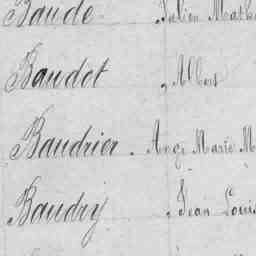 Baude. Julien Math
Baudet , Albert
Baudrier . Ange Marie M
Baudry , Jean Louis